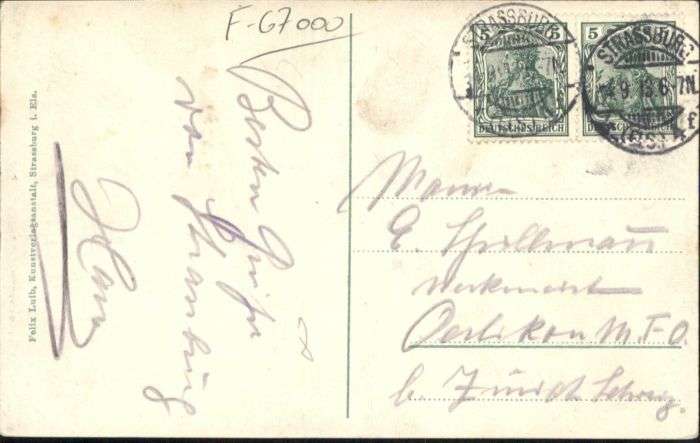 F-67000
Besten Gruss
von Strassburg
Hans
Felix Luib, Kunstverlagsanstalt, Strassburg i. Els.
5 5
DEUTSCHES REICH
5
DEUTSCHES REICH
STRASSBURG
STRASSBURG
9.13.6-7N.
E. Spillmann
Werkmeister
Oerlikon M.F.O.
b. Zürich Schweiz